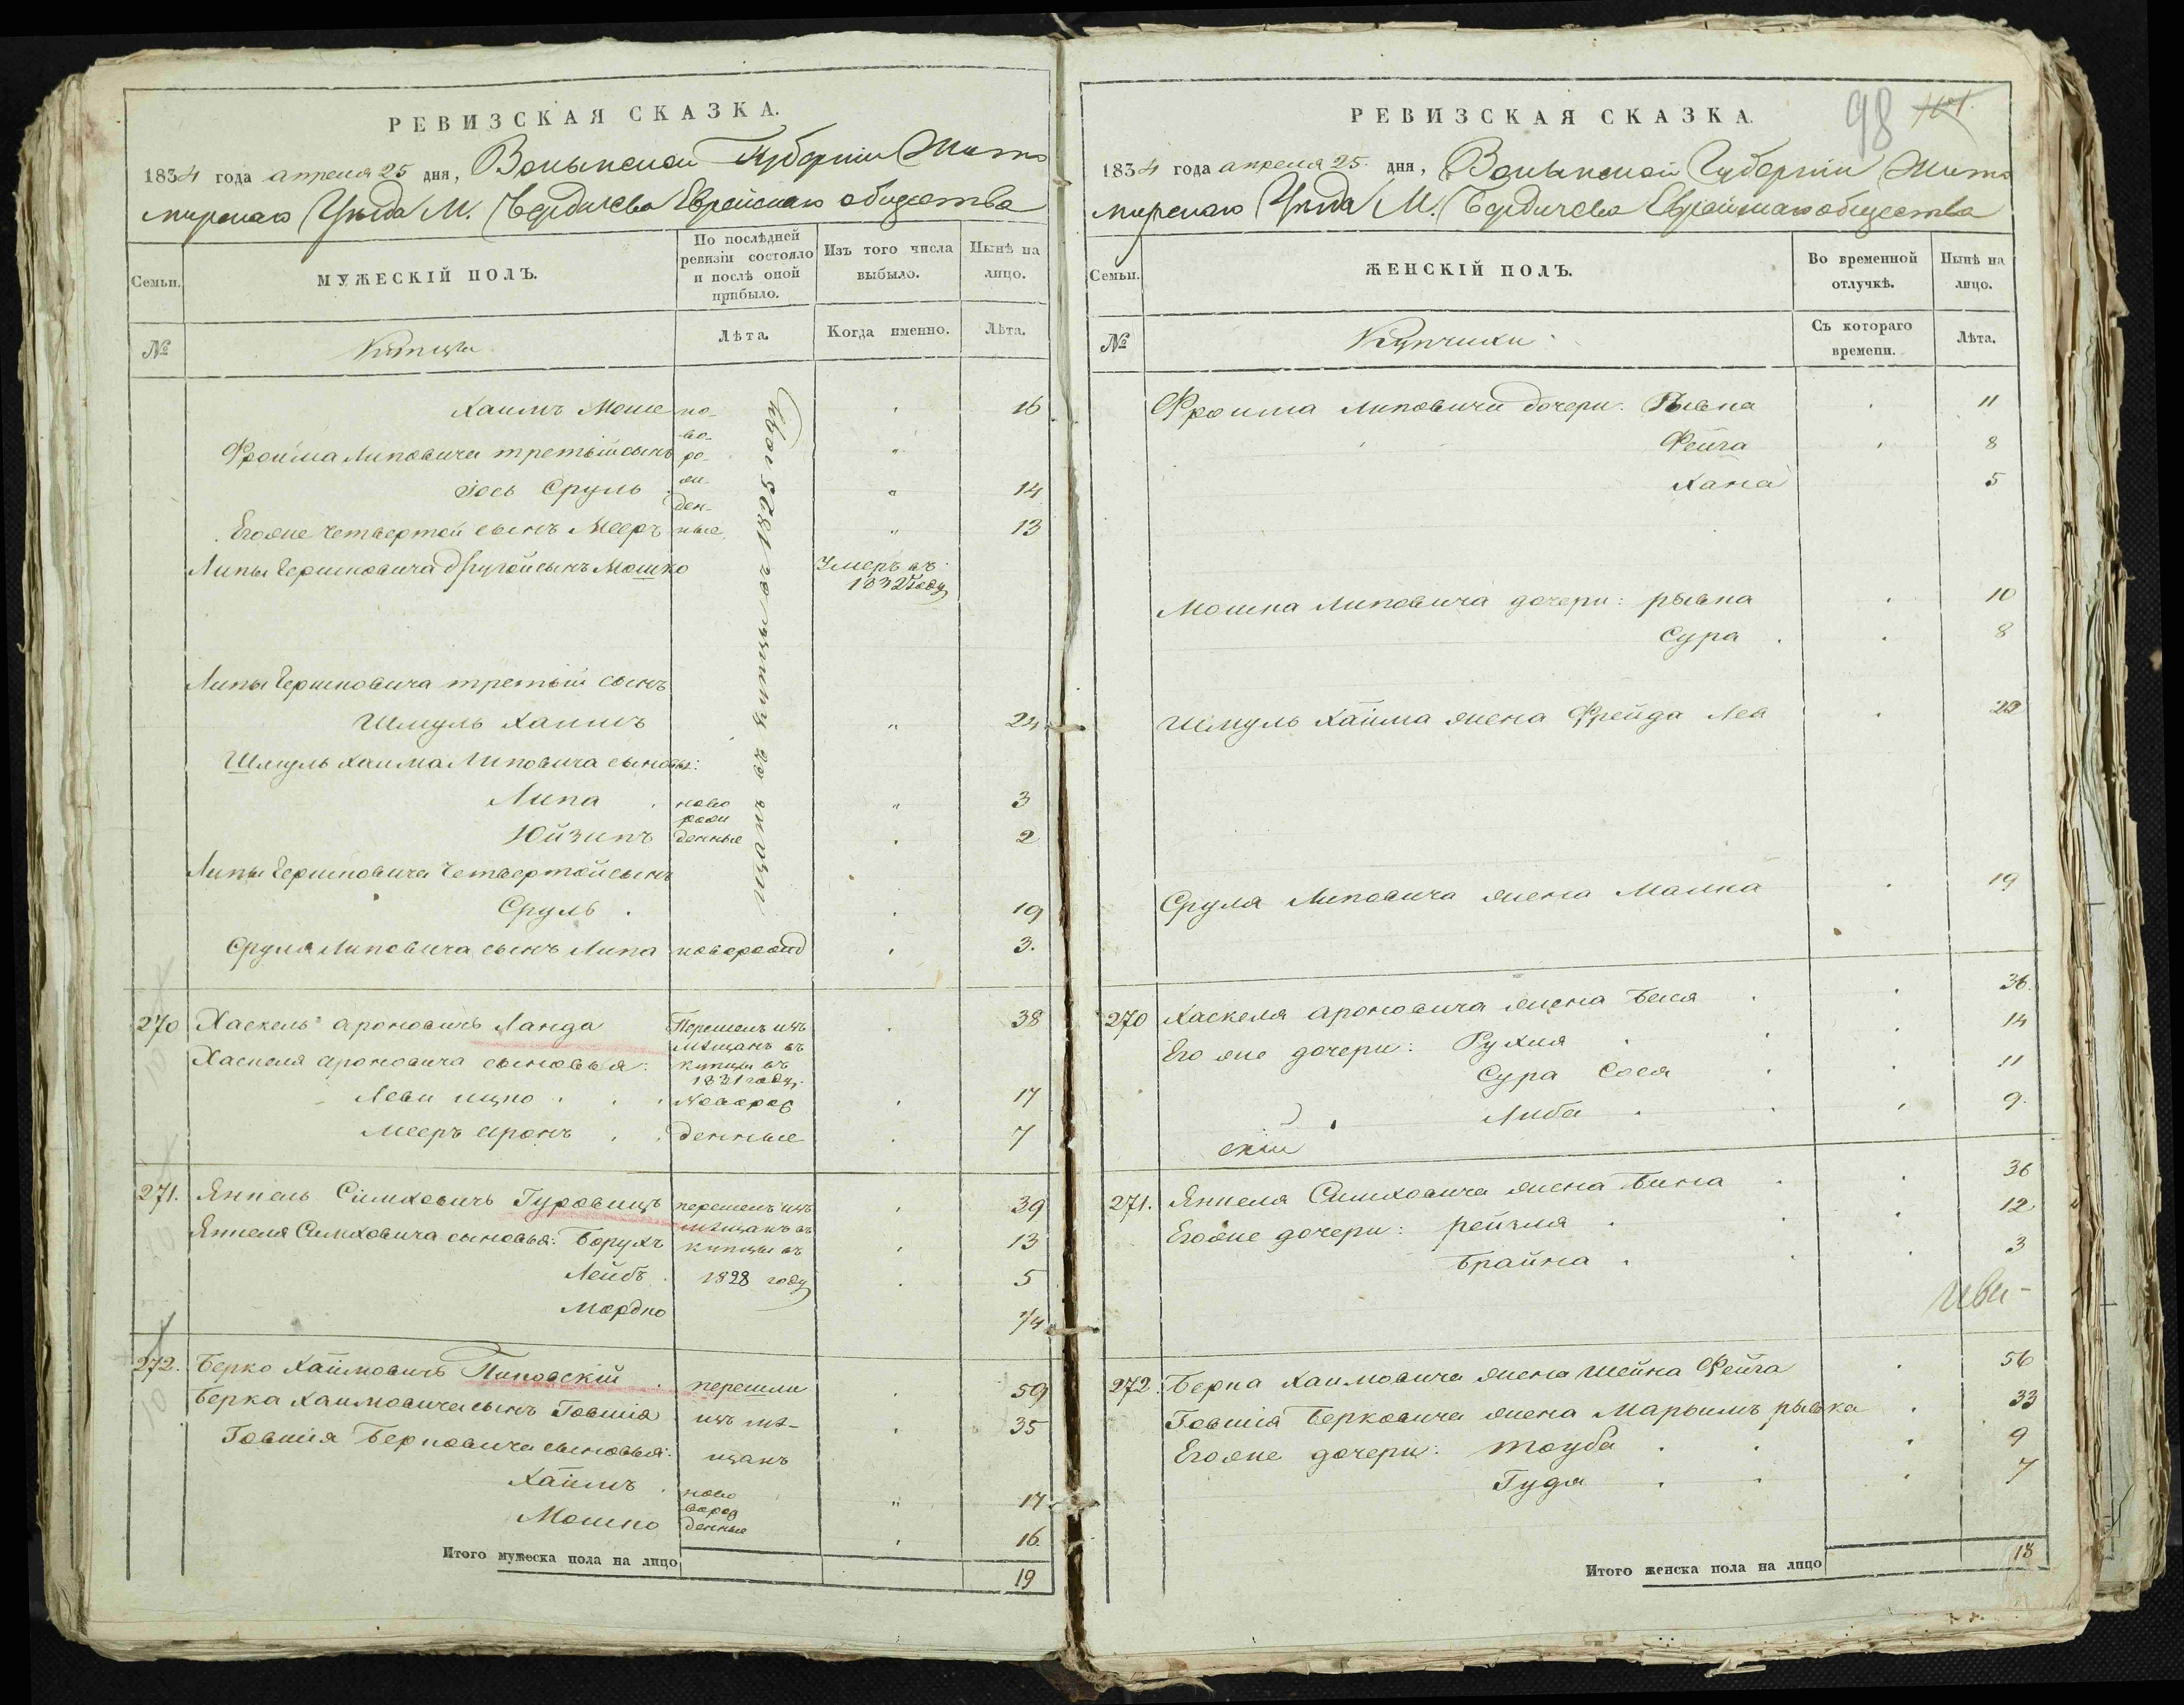 РЕВИЗСКАЯ СКАЗКА.
1834 года апреля 25 дня, Волынской Губерніи Жито
мирскаго Уѣзда М. Бердичева Еврейскаго общества
Семьи.
МУЖЕСКІЙ ПОЛЪ.
По послѣдней ревизіи состояло и послѣ оной прибыло.
Изъ того числа выбыло.
Нынѣ на лицо.
№
Купцы
Лѣта.
Когда именно.
Лѣта.
Хаимъ Моше но- 16
во-
Фроима Липовича третій сынъ ро-
Іось Сруль жи- 14
ден-
Егоже Четвертой сынъ Мееръ ные 13
Липы Гершковича другой сынъ Мошко Умеръ въ
1832 году
Липы Гершковича третій сынъ
Шмуль Хаимъ 24
Шмуль Хаима Липовича сыновья:
Липа ново 3
рож
Юйзипъ денные 2
Липы Гершковича Четвертой сынъ
Сруль 19
Сруля Липовича сынъ Липа поворожд 3.
1825 году купцы изъ мѣщанъ
270 Хаскель Ароновичъ Ланда Перешелъ изъ 38
мѣщанъ въ
Хаскеля Ароновича сыновья: купцы въ
1831 году.
Леви ицко Новорож 17
Мееръ Аронъ денные 7
271. Янкель Симховичъ Гуровицъ перешелъ изъ 39
мѣщанъ въ
Янкеля Симховича сыновья: Борухъ купцы въ 13
Лейбъ 1828 году 5
Мордко 1/4
272. Берко Хаимовичъ Липовскій перешли 59
Берка Хаимовича сынъ Говшія изъ мѣ- 35
Говшія Берковича сыновья: щанъ
Хаимъ ново 17
Мошко денные 16.
Итого мужеска пола на лицо 19
98 101
РЕВИЗСКАЯ СКАЗКА.
1834 года апреля 25 дня, Волынской Губерніи Жито
мирскаго Уѣзда М. Бердичева Еврейскаго общества
Семьи.
ЖЕНСКІЙ ПОЛЪ.
Во временной отлучкѣ.
Нынѣ на лицо.
№
Купчихи
Съ котораго времени.
Лѣта.
Фроима Липовича дочери: Рывка 11
Фейга 8
Хана 5
Мошка Липовича дочери: рывка 10
Сура 8
Шмуль Хаима жена Фрейда Лея
Сруля Липовича жена Малка 19
270 Хаскеля Ароновича жена Бася 36.
Его же дочери: Рухля 14
Сура Сося 11
Либа 9.
271. Янкеля Симховича жена Бина 36
Егоже дочери: рейзля 12
Брайна 3
272. Берка Хаимовича жена Шейна Фейга 56
Говшія Берковича жена Марьимъ рывка 33
Егоже дочери: тоуба 9
Гудя 7
Итого женска пола на лицо